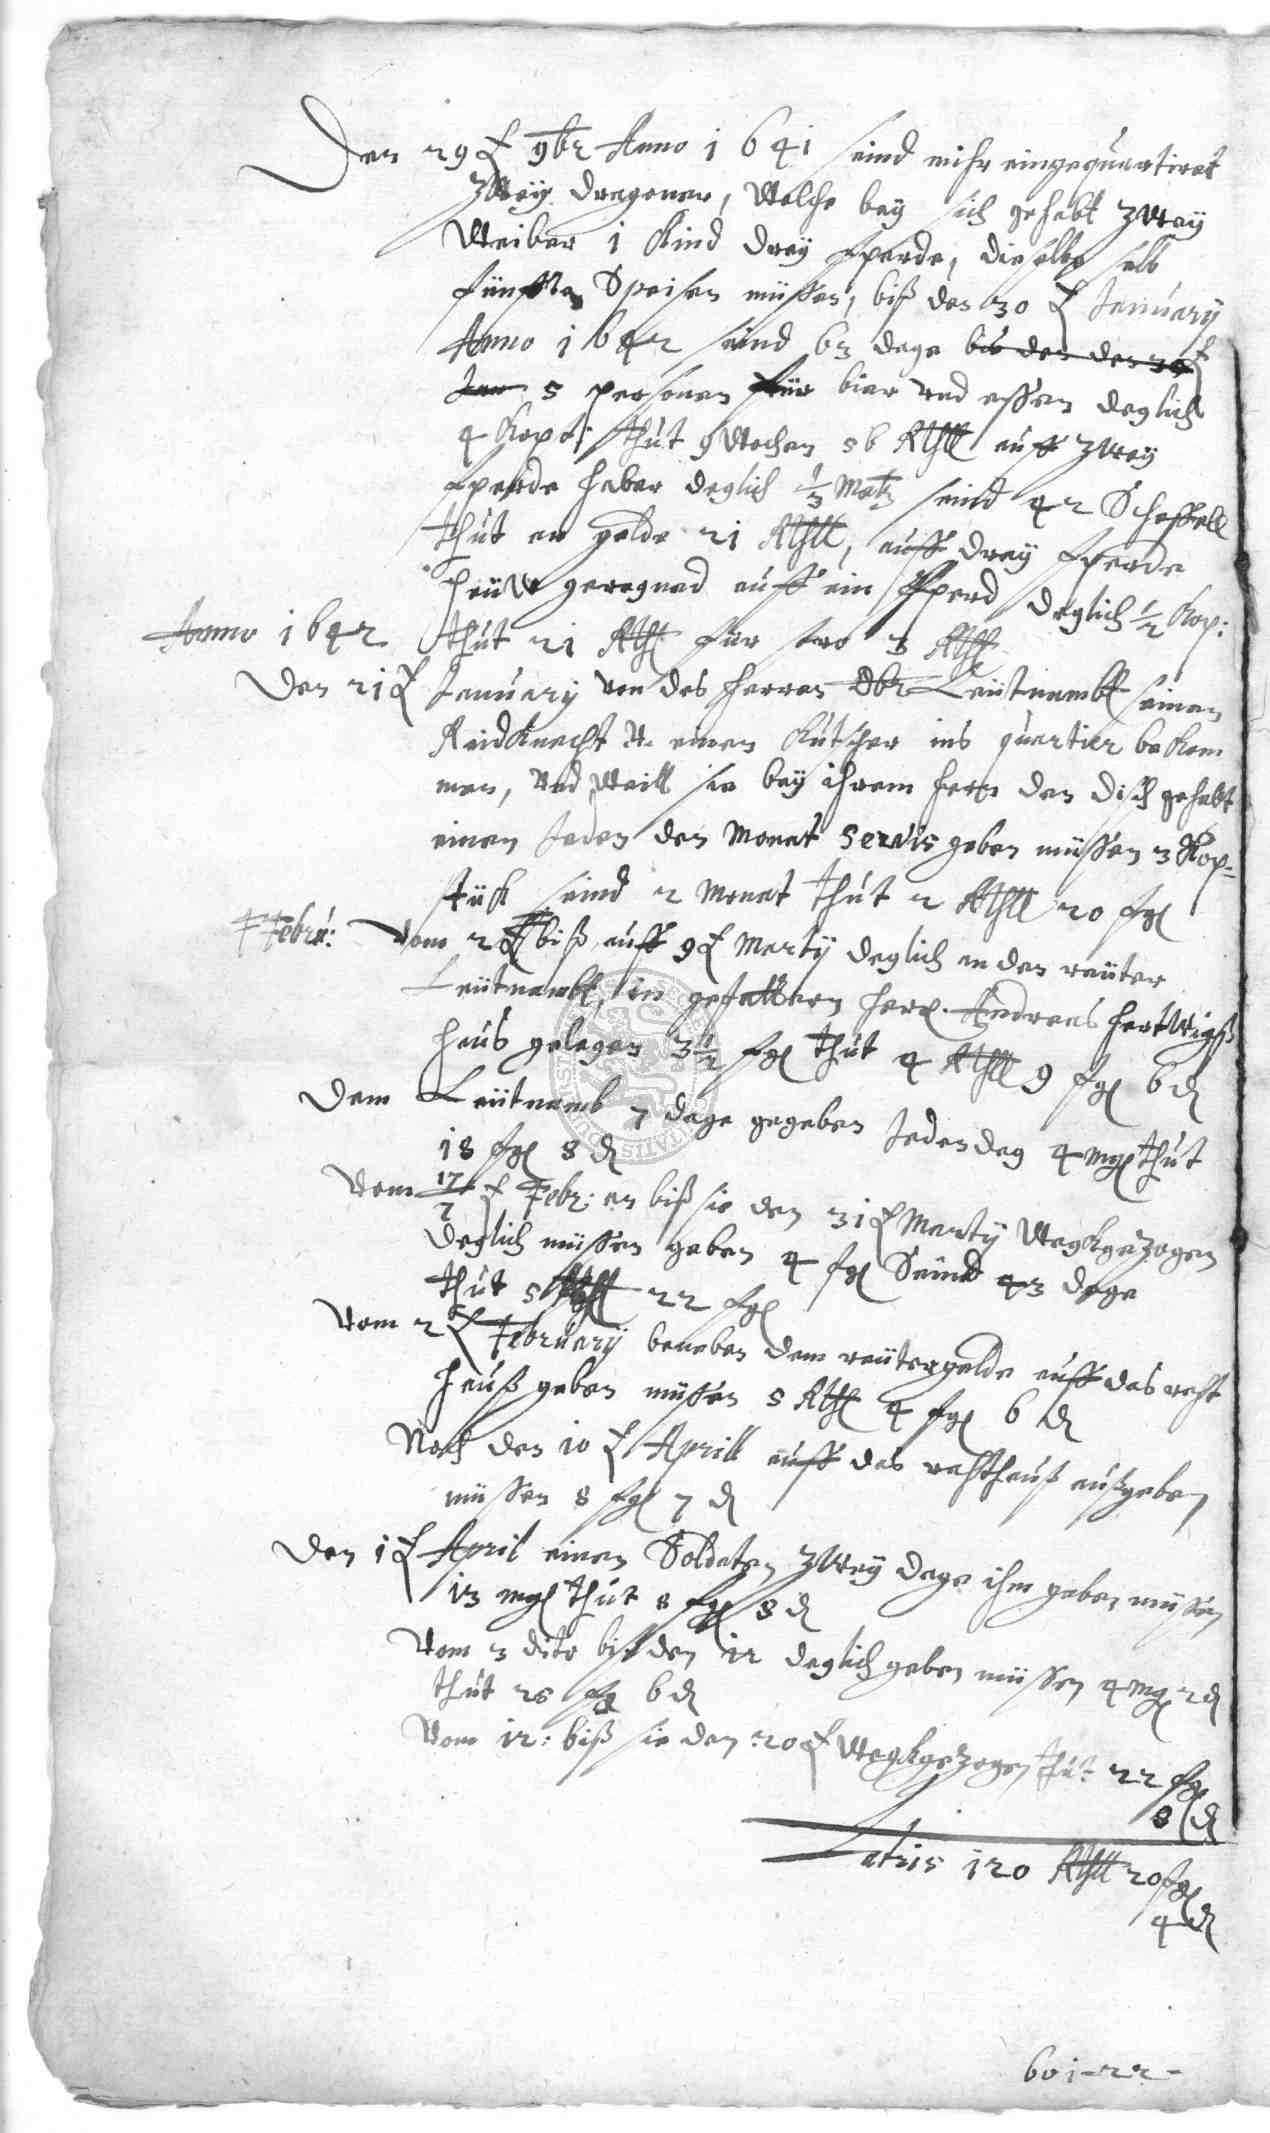 Den 29 t 9br Anno 1641 seind mihr eingequartiret
Zwey Dragoner, Welche bey sich gehabt zwey
Weiber 1 Kind drey Pferde, dieselbe selb
fünfften Speisen müssen, biß den 30 t January
Anno 1642 seind 63 dage bis den den 30 t
Jan 5 personen für bier und essen deglich
4 Kopst: thut 9 Wochen 56 Rthll auff zwey
Pferde haber deglich 1/3 Metz seind 42 Scheffell
thut an gelde 21 Rthll, auff drey Pferde
heüw geregned auff ein Pferd deglich 1/2 Kop:
Anno 1642 thut 21 Rthl für stro 3 Rthl
Den 21 t January von des herren Obr Leütnambt seinen
Reidknecht u. einen Kutscher ins quartier bekom
men, Und Weill sie bey ihrem herrn den disch gehabt
einen Jeden den Monat servis geben müssen 3 Kop-
stük seind 2 Monat thut 2 Rthll 20 sgl
Febru: Vom 2 t biß auff 9 t Marty deglich an den reüter
Leütnambt, in gefattern herr. Andreas hertwigß
haus gelegen 3 1/2 sgl thut 4 Rthll 9 sgl 6 d
Dem Leütnamb 7 dage gegeben Jeden dag 4 mgl thut
18 sgl 8 d
Vom 17/7 t Febr: an biß sie den 31 t Marty Wegkgezogen
deglich müssen geben 4 sgl Seind 43 dage
thut 5 Rthl 22 sgl
Vom 2 t February beneben dem reütergelde auff das raht
hauß geben müssen 5 Rthl 4 sgl 6 d
Noch den 10 t Aprill auff das rahthauß außgeben
müssen 8 sgl 7 d
Den 1 t April einen Soldaten zwey dage ihm geben müssen
13 mgl thut 8 sgl 8 d
Vom 3 dito biß den 12 deglich geben müssen 4 mgl 2 d
thut 25 sgl 6 d
Vom 12: biß sie den 20 t Wegkgezogen thut 22 sgl
8 d
Latris 120 Rthll 20 sgl
4 d
601-22-